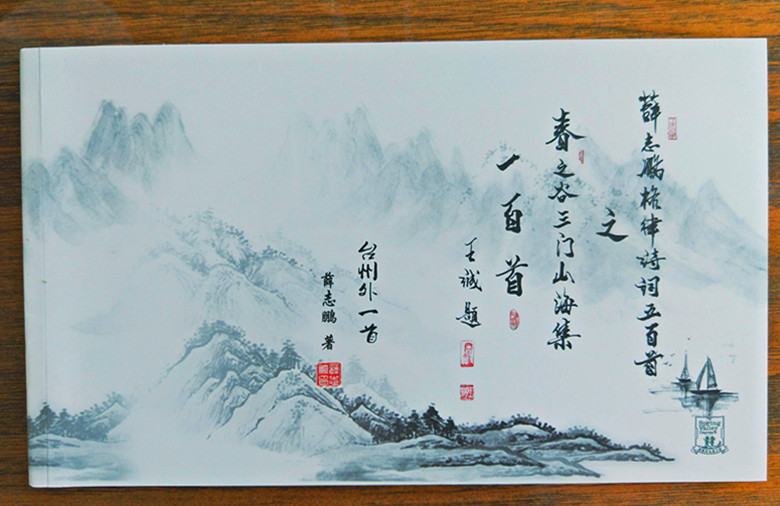 薛志鹏格律诗词五百首
之
春之谷三门山海集
一百首
王诚题
台州外一首
薛志鹏 著